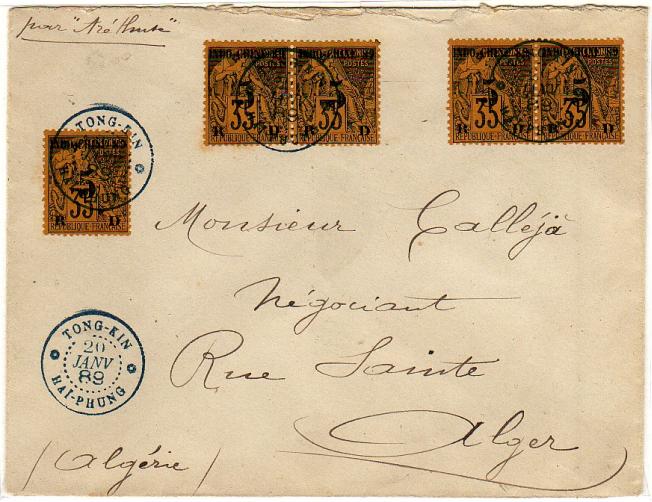 par "Aréthuse"
INDO-CHINE 5 35 POSTES R D REPUBLIQUE FRANÇAISE
INDO-CHINE 5 35 POSTES R D REPUBLIQUE FRANÇAISE
INDO-CHINE 5 35 R D REPUBLIQUE FRANÇAISE
INDO-CHINE 5 35 POSTES R D REPUBLIQUE FRANÇAISE
TONG-KIN
INDO-CHINE 5 35 R D
REPUBLIQUE FRANÇAISE
Monsieur Calléjà
Négociant
TONG-KIN
20
JANV
89
HAI-PHUNG
Rue Sainte
Alger
(Algérie)